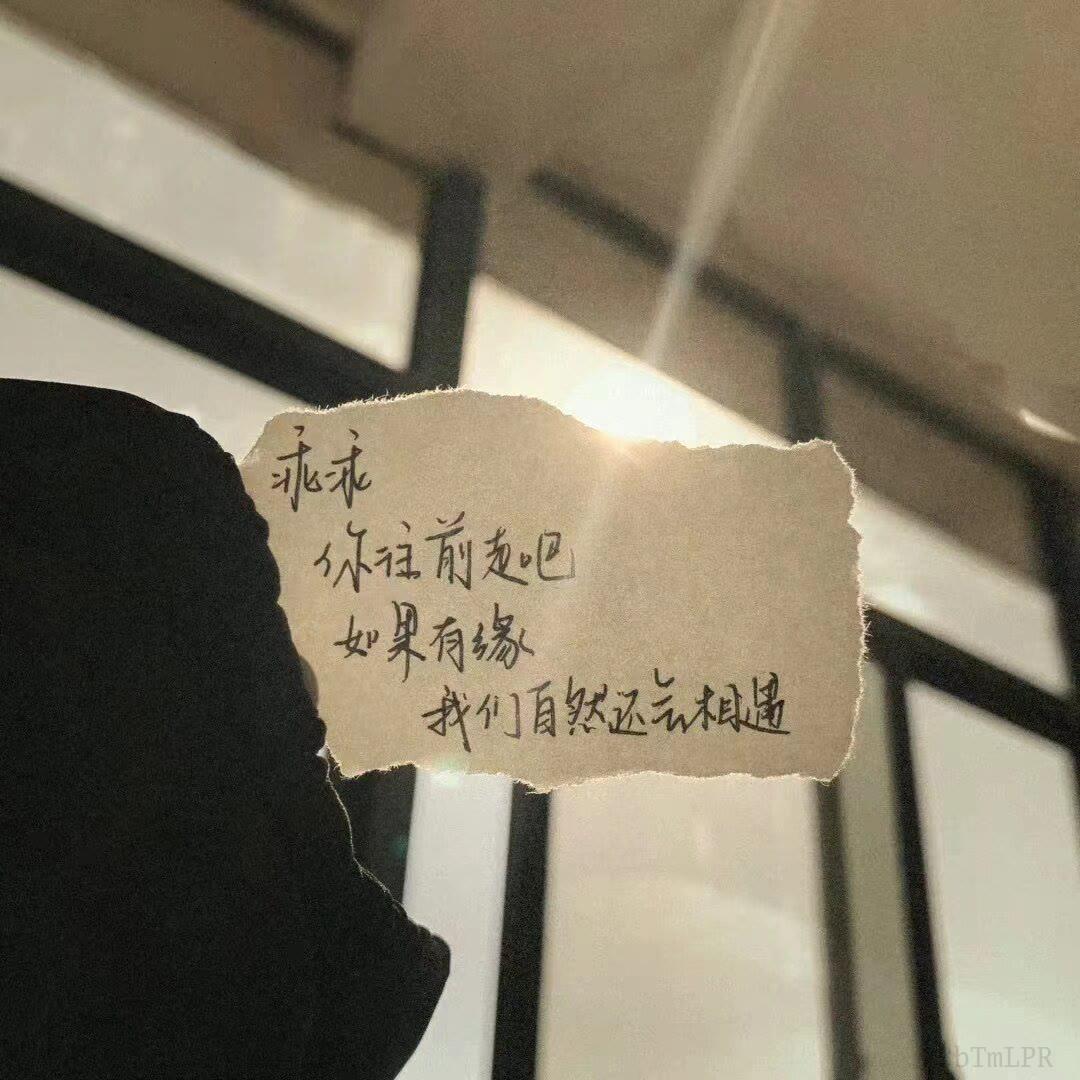 乖乖
你往前走吧
如果有缘
我们自然还会相遇
bTmLPR